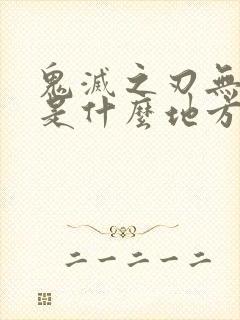 鬼滅之刃無
是什麼地方
二一二一二